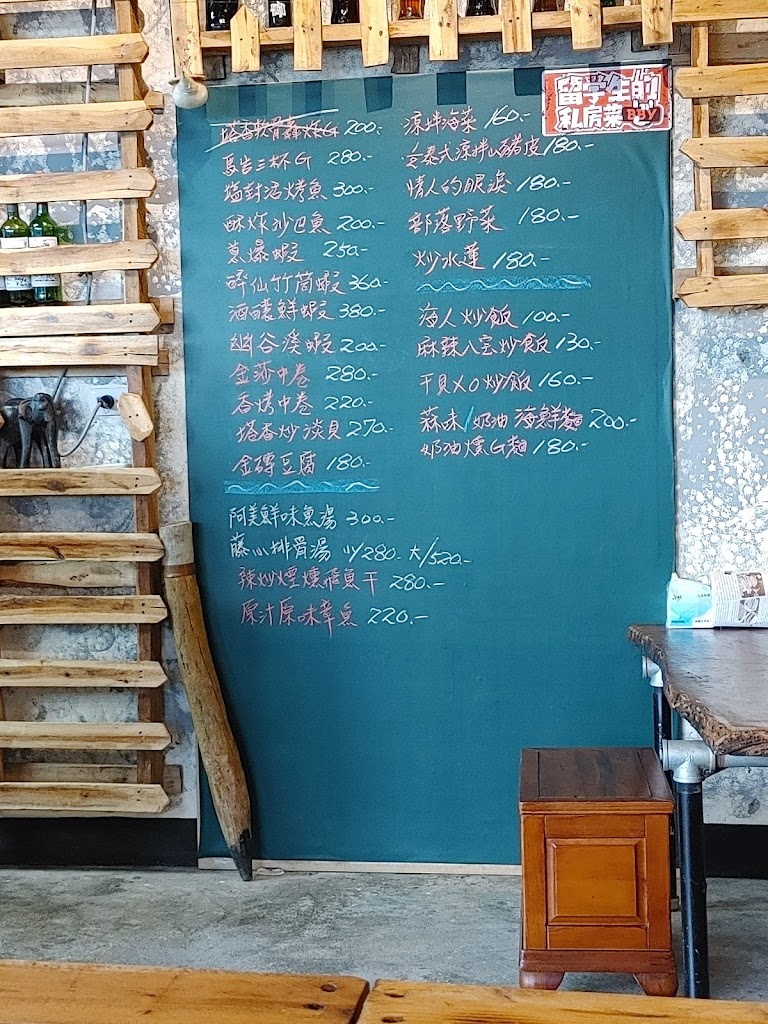 留学生的
私房菜 BBY
塔香軟骨轟炸G 200.-
馬告三杯G 280.-
鹽封活烤魚 300.-
酥炸沙巴魚 200.-
蔥爆蝦 250.-
醉仙竹筒蝦 360.-
酒釀鮮蝦 380.-
幽谷溪蝦 200.-
金莎中卷 280.-
香烤中卷 220.-
塔香炒淡貝 270.-
金磚豆腐 180.-
阿美鮮味魚湯 300.-
藤心排骨湯 小/280.- 大/520.-
辣炒煙燻飛魚干 280.-
原汁原味章魚 220.-
涼拌海菜 160.-
泰式涼拌山豬皮 180.-
情人的眼淚 180.-
部落野菜 180.-
炒水蓮 180.-
海人炒飯 100.-
麻辣八宝炒飯 130.-
干貝XO炒飯 160.-
蒜味/奶油 海鮮麵 200.-
奶油燻G麵 180.-